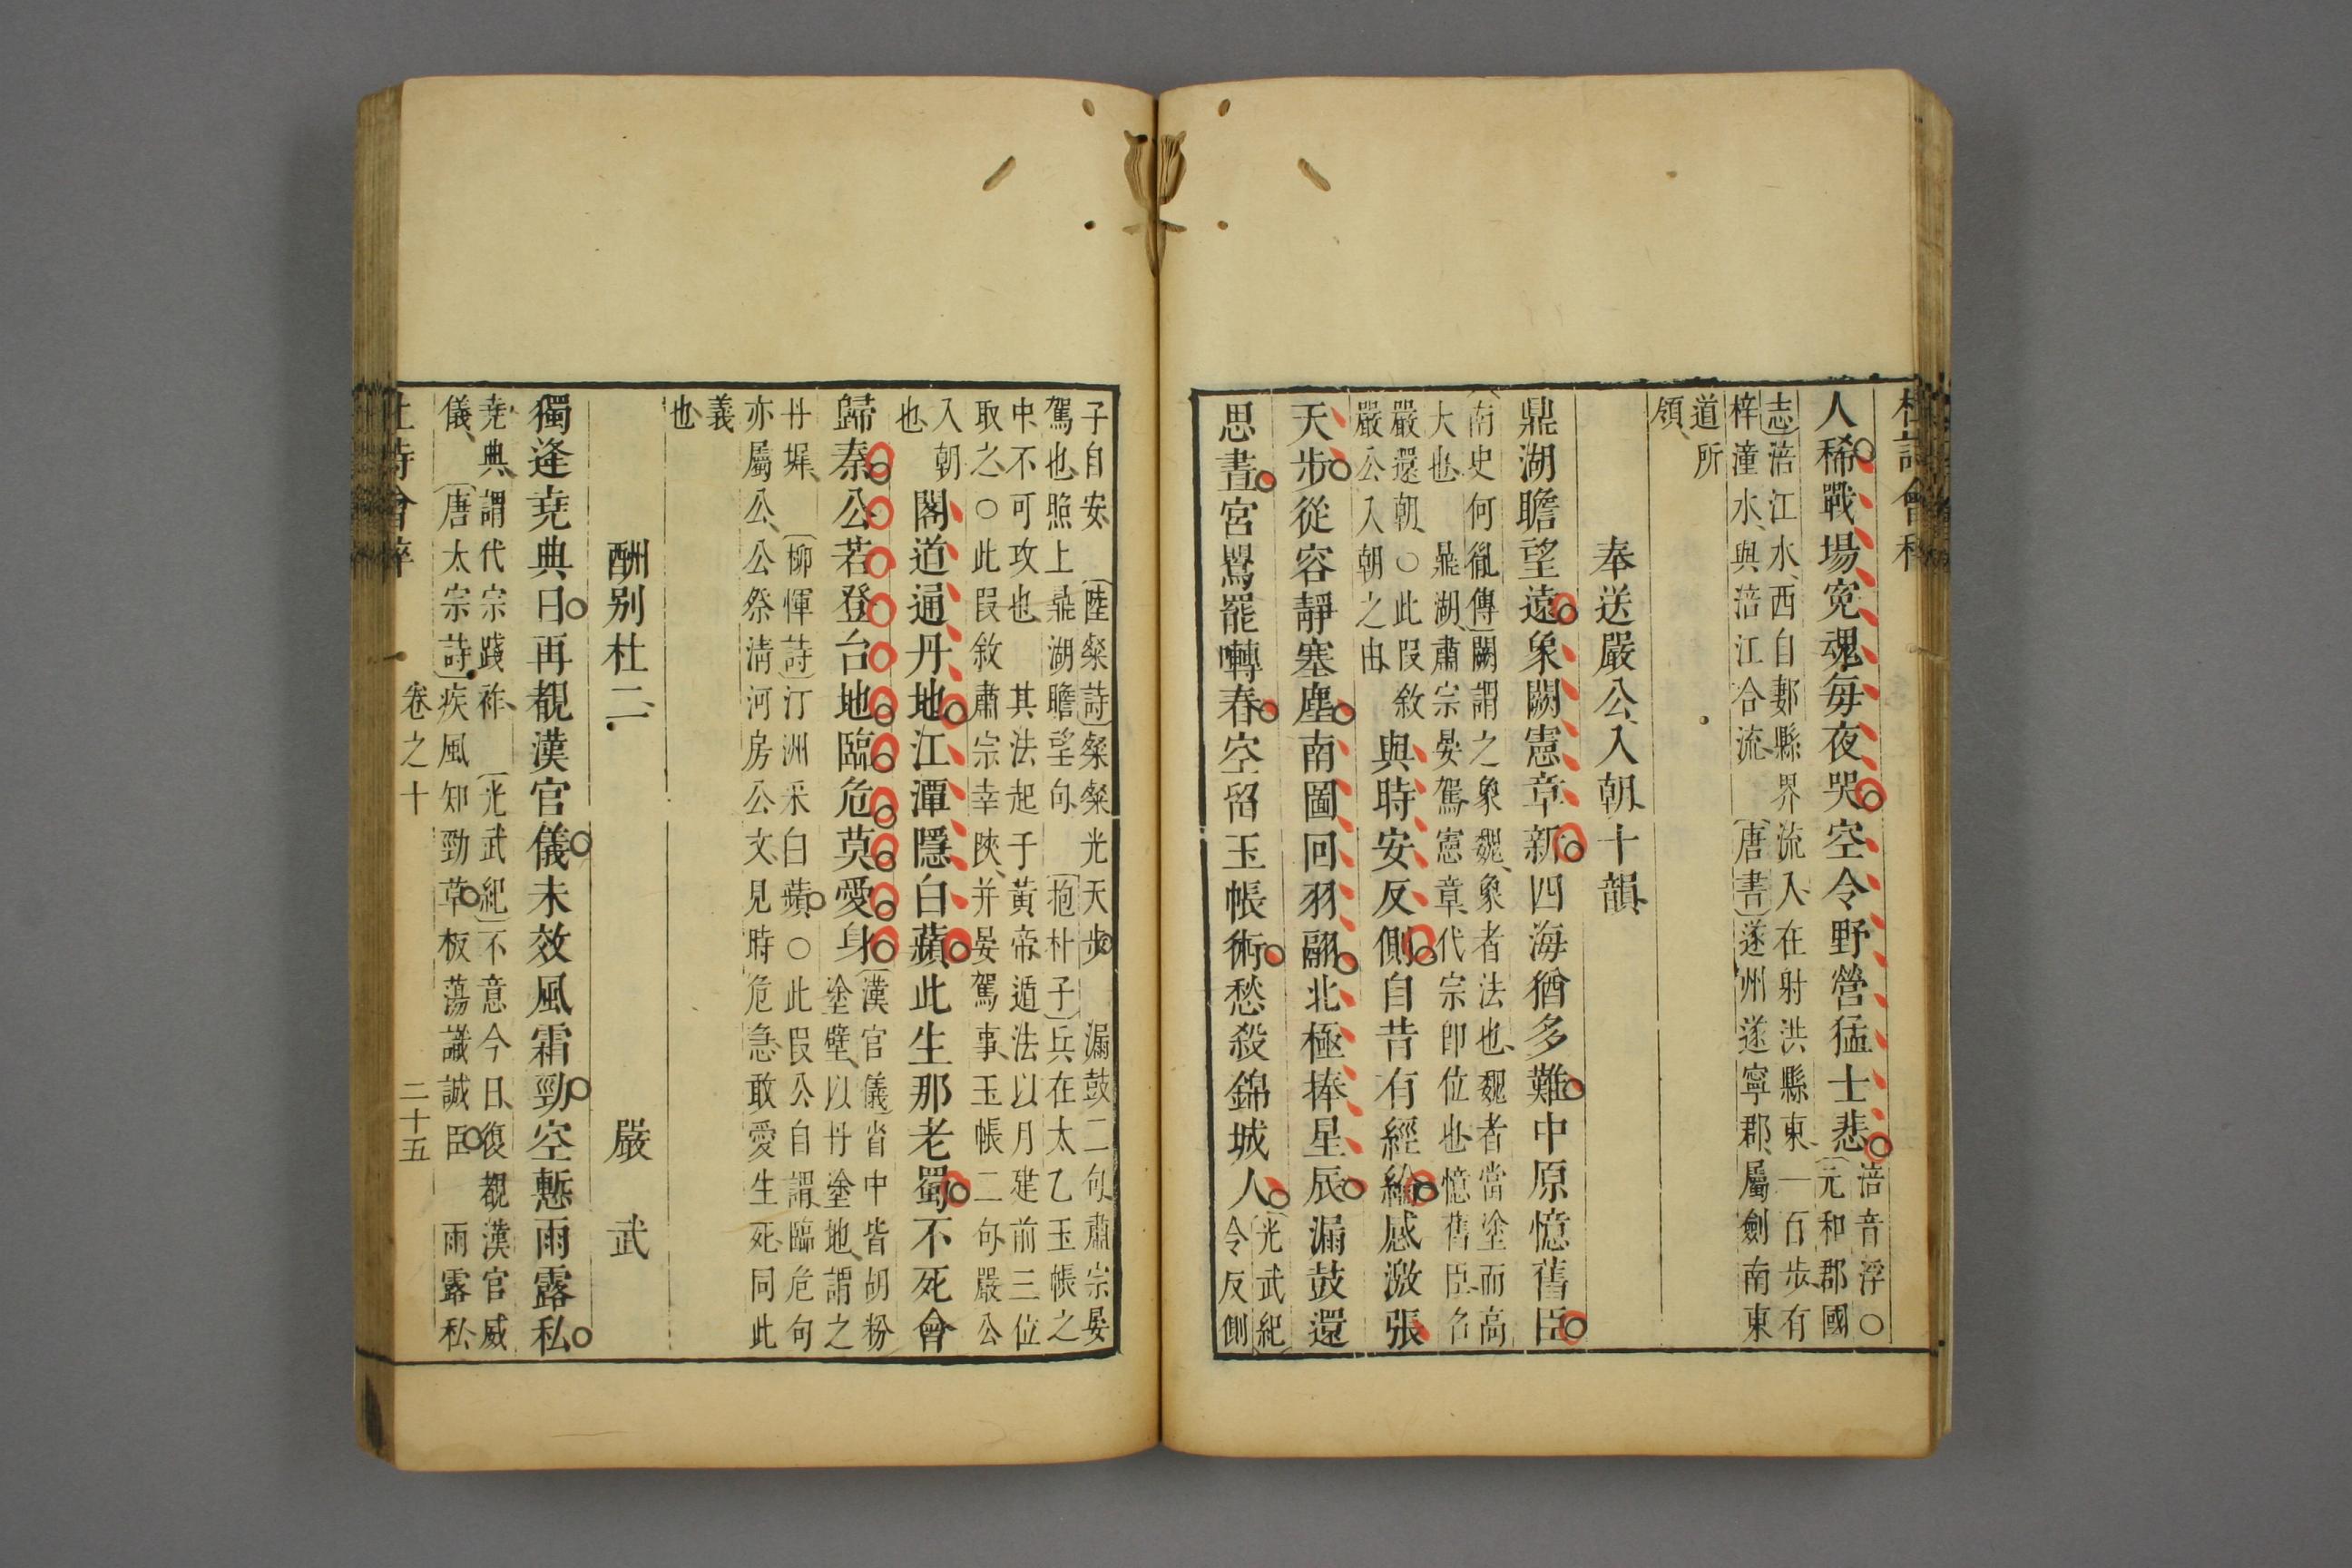 杜詩會粹
人稀戰場寃魂每夜哭空令野營猛士悲
涪音浮○
〔元和郡國
志〕涪江水西自郪縣界流入在射洪縣東一百步有
梓潼水與涪江合流 〔唐書〕遂州遂寧郡屬劍南東
道所
領
奉送嚴公入朝十韻
鼎湖瞻望遠象闕憲章新四海猶多難中原憶舊臣
〔南史何胤傳〕闕謂之象魏象者法也魏者當塗而高
大也 鼎湖肅宗晏駕憲章代宗卽位也憶舊臣名
嚴還朝○此叚敘
嚴公入朝之由
與時安反側自昔有經綸感激張
天步從容靜塞塵南圖回羽翮北極捧星辰漏鼓還
思晝宮鶯罷囀春空留玉帳術愁殺錦城人
〔光武紀〕
令反側
子自安 〔陸粲詩〕粲粲光天步 漏鼓二句肅宗晏
駕也照上鼎湖瞻望句 〔抱朴子〕兵在太乙玉帳之
中不可攻也 其法起于黃帝遁法以月建前三位
取之○此叚敘肅宗幸陜并晏駕事玉帳二句嚴公
入朝
也
閣道通丹地江潭隱白蘋此生那老蜀不死會
歸秦公若登台地臨危莫愛身
〔漢官儀〕省中皆胡粉
塗壁以丹塗地謂之
丹墀 〔柳惲詩〕汀洲采白蘋○此叚公自謂臨危句
亦屬公公祭清河房公文見時危急敢愛生死同此
義
也
酬别杜二 嚴武
獨逢堯典日再覩漢官儀未效風霜勁空慙雨露私
堯典謂代宗踐祚 〔光武紀〕不意今日復覩漢官威
儀 〔唐太宗詩〕疾風知勁草板蕩識誠臣 雨露私
杜詩會粹 卷之十 二十五